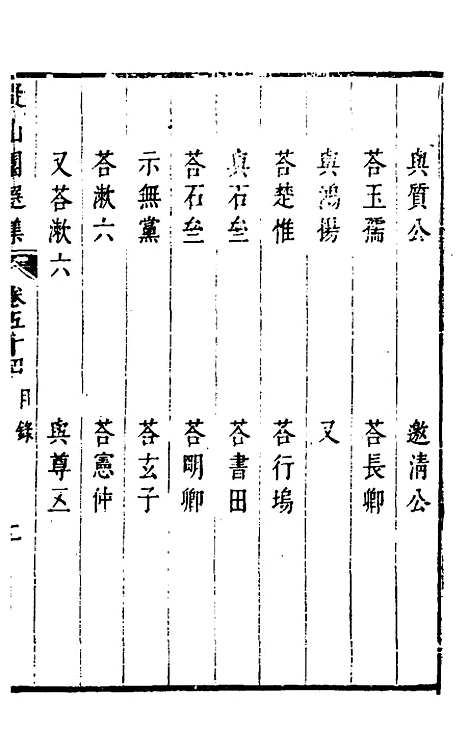 與質公　邀淸公
荅玉孺　荅長卿
與鴻傷　又
荅楚惟　荅行塢
與石壘　荅書田
荅石壘　荅明卿
示無黨　荅玄子
荅漱六　荅憲仲
又荅漱六　與尊五
山園選集　卷五十四　目錄